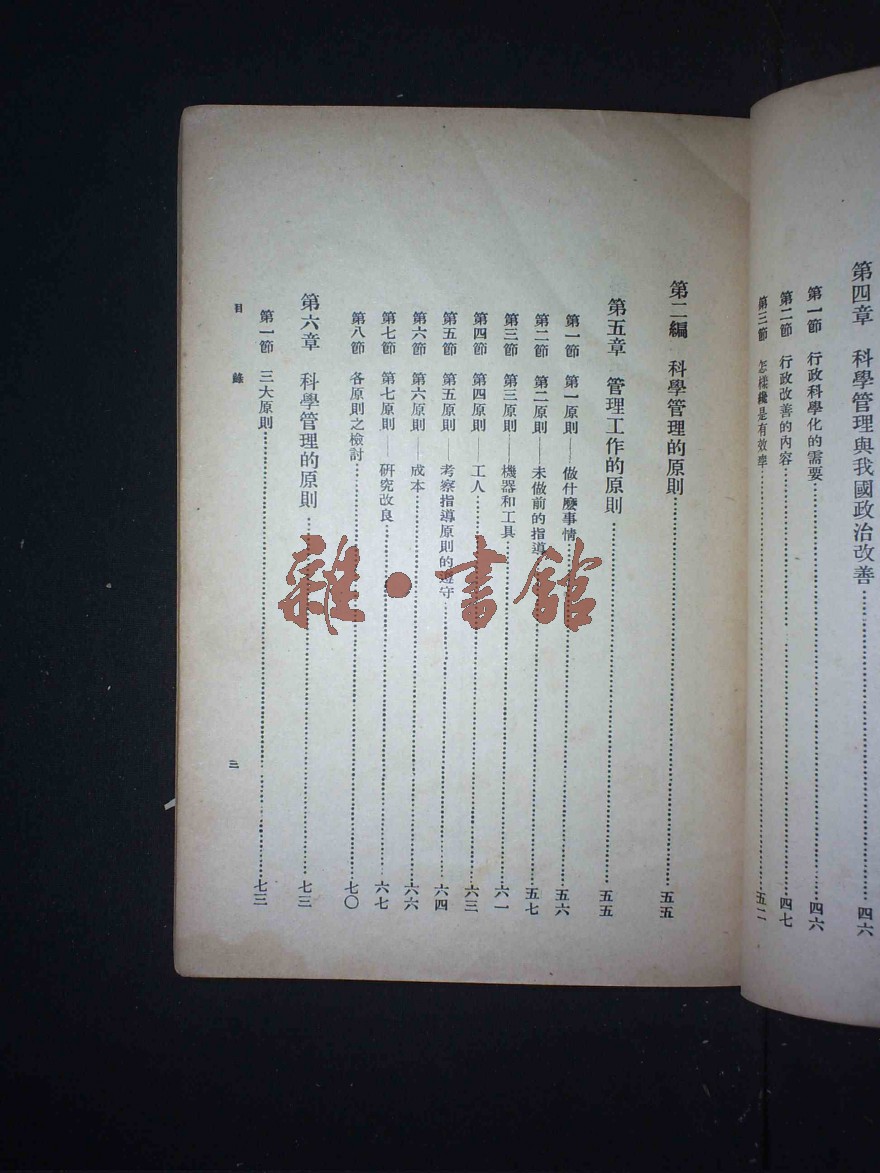 第四章　科學管理與我國政治改善……四六
第一節　行政科學化的需要……四六
第二節　行政改善的內容……四七
第三節　怎樣纔是有效率……五二
第二編　科學管理的原則……五五
第五章　管理工作的原則……五五
第一節　第一原則——做什麼事情……五六
第二節　第二原則——未做前的指導……五七
第三節　第三原則——機器和工具……六一
第四節　第四原則——工人……六三
第五節　第五原則——考察指導原則的遵守……六四
第六節　第六原則——成本……六六
第七節　第七原則——研究改良……六七
第八節　各原則之檢討……七〇
第六章　科學管理的原則……七三
第一節　三大原則……七三
目　錄　三
雜·書館